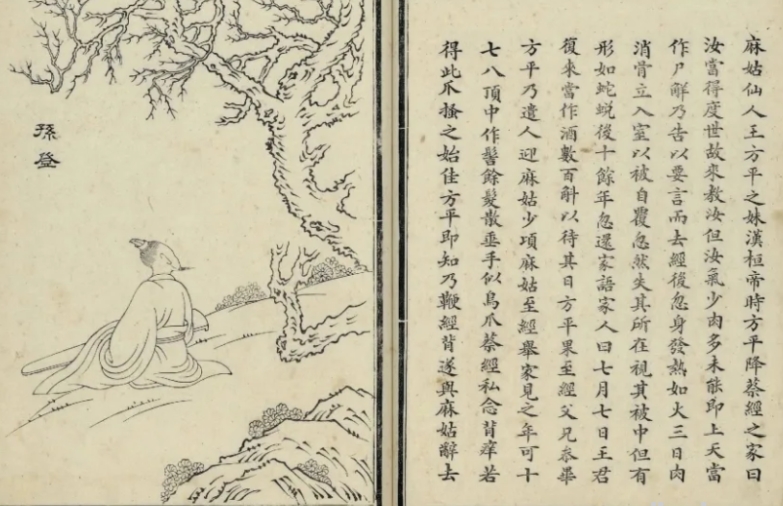 麻姑仙人王方平之妹漢桓帝時方平降蔡經之家曰
汝當得度世故來教汝但汝氣少肉多未能即上天當
作尸解乃告以要言而去經後忽身發熱如火三日肉
消骨立入室以被自覆忽然失其所在視其被中但有
形如蛇蛻後十餘年忽還家語家人曰七月七日王君
復來當作酒數百斛以待其日方平果至經父兄參畢
方平乃遣人迎麻姑少頃麻姑至經舉家見之年可十
七八頂中作髻餘髮散垂手似鳥爪蔡經私念背痒若
得此爪搔之始佳方平即知乃鞭經背遂與麻姑辭去
孫登